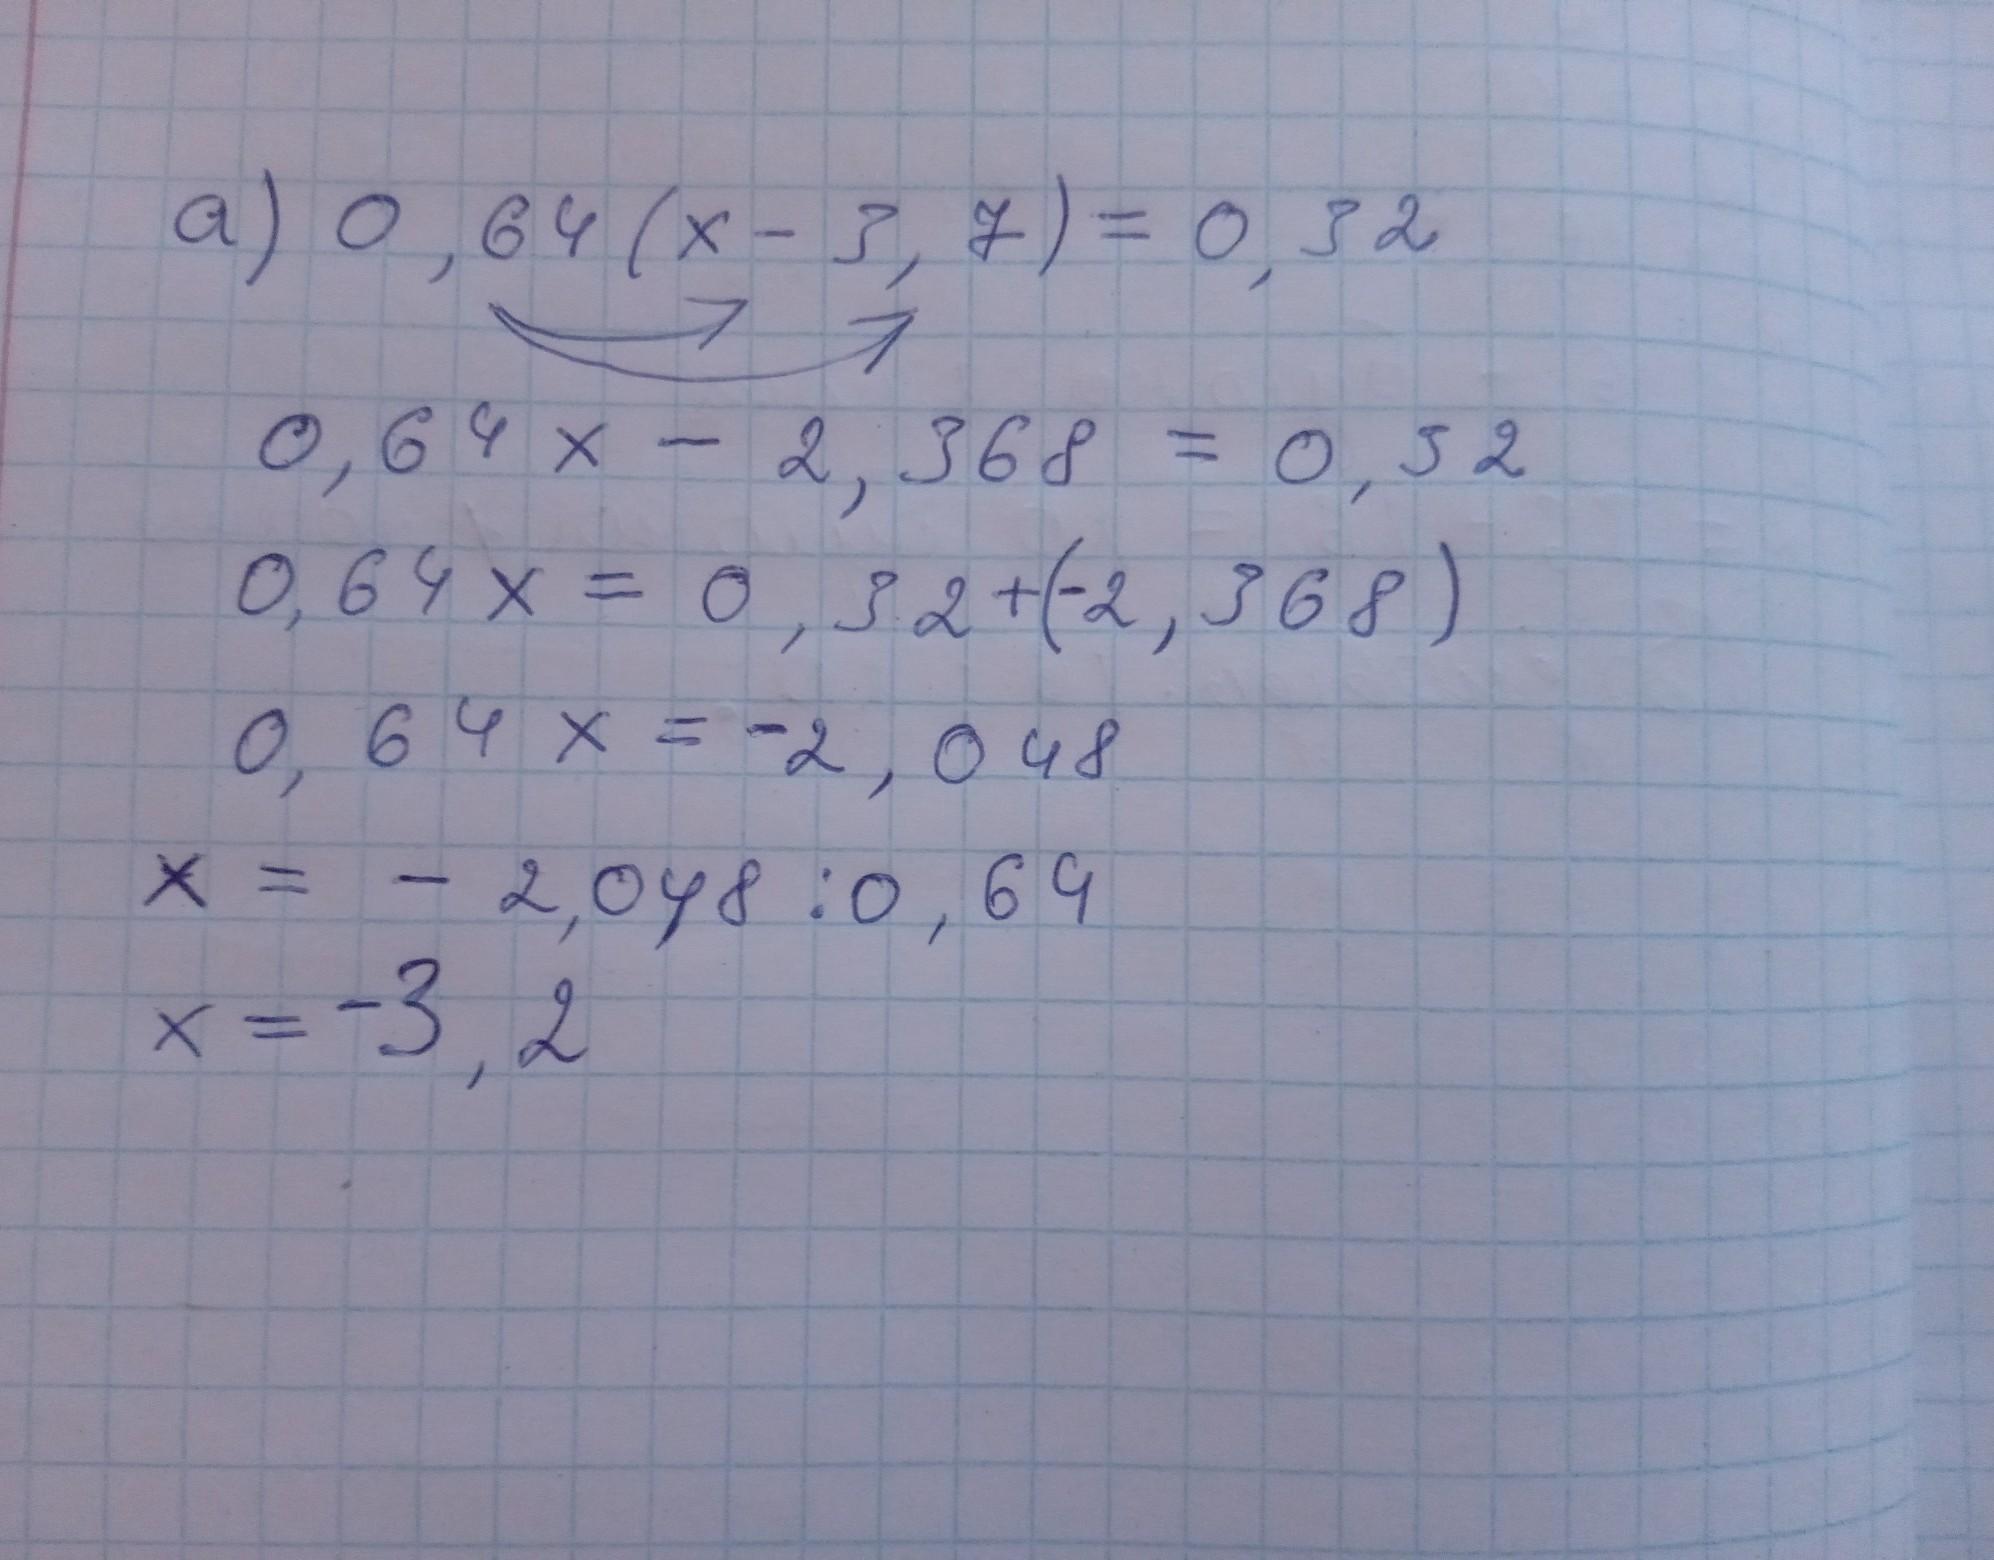 а) 0,64(x-3,7)=0,32
0,64x-2,368=0,32
0,64x=0,32+(-2,368)
0,64x=-2,048
x=-2,048:0,64
x=-3,2